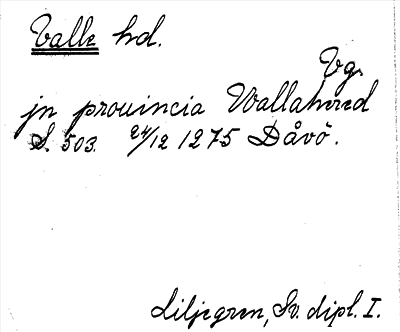 Valle hd.
Vg.
jn prouincia Wallahæred
S. 503. 24/12 1275 Dåvö.
Liljegren, Sv. dipl. I.